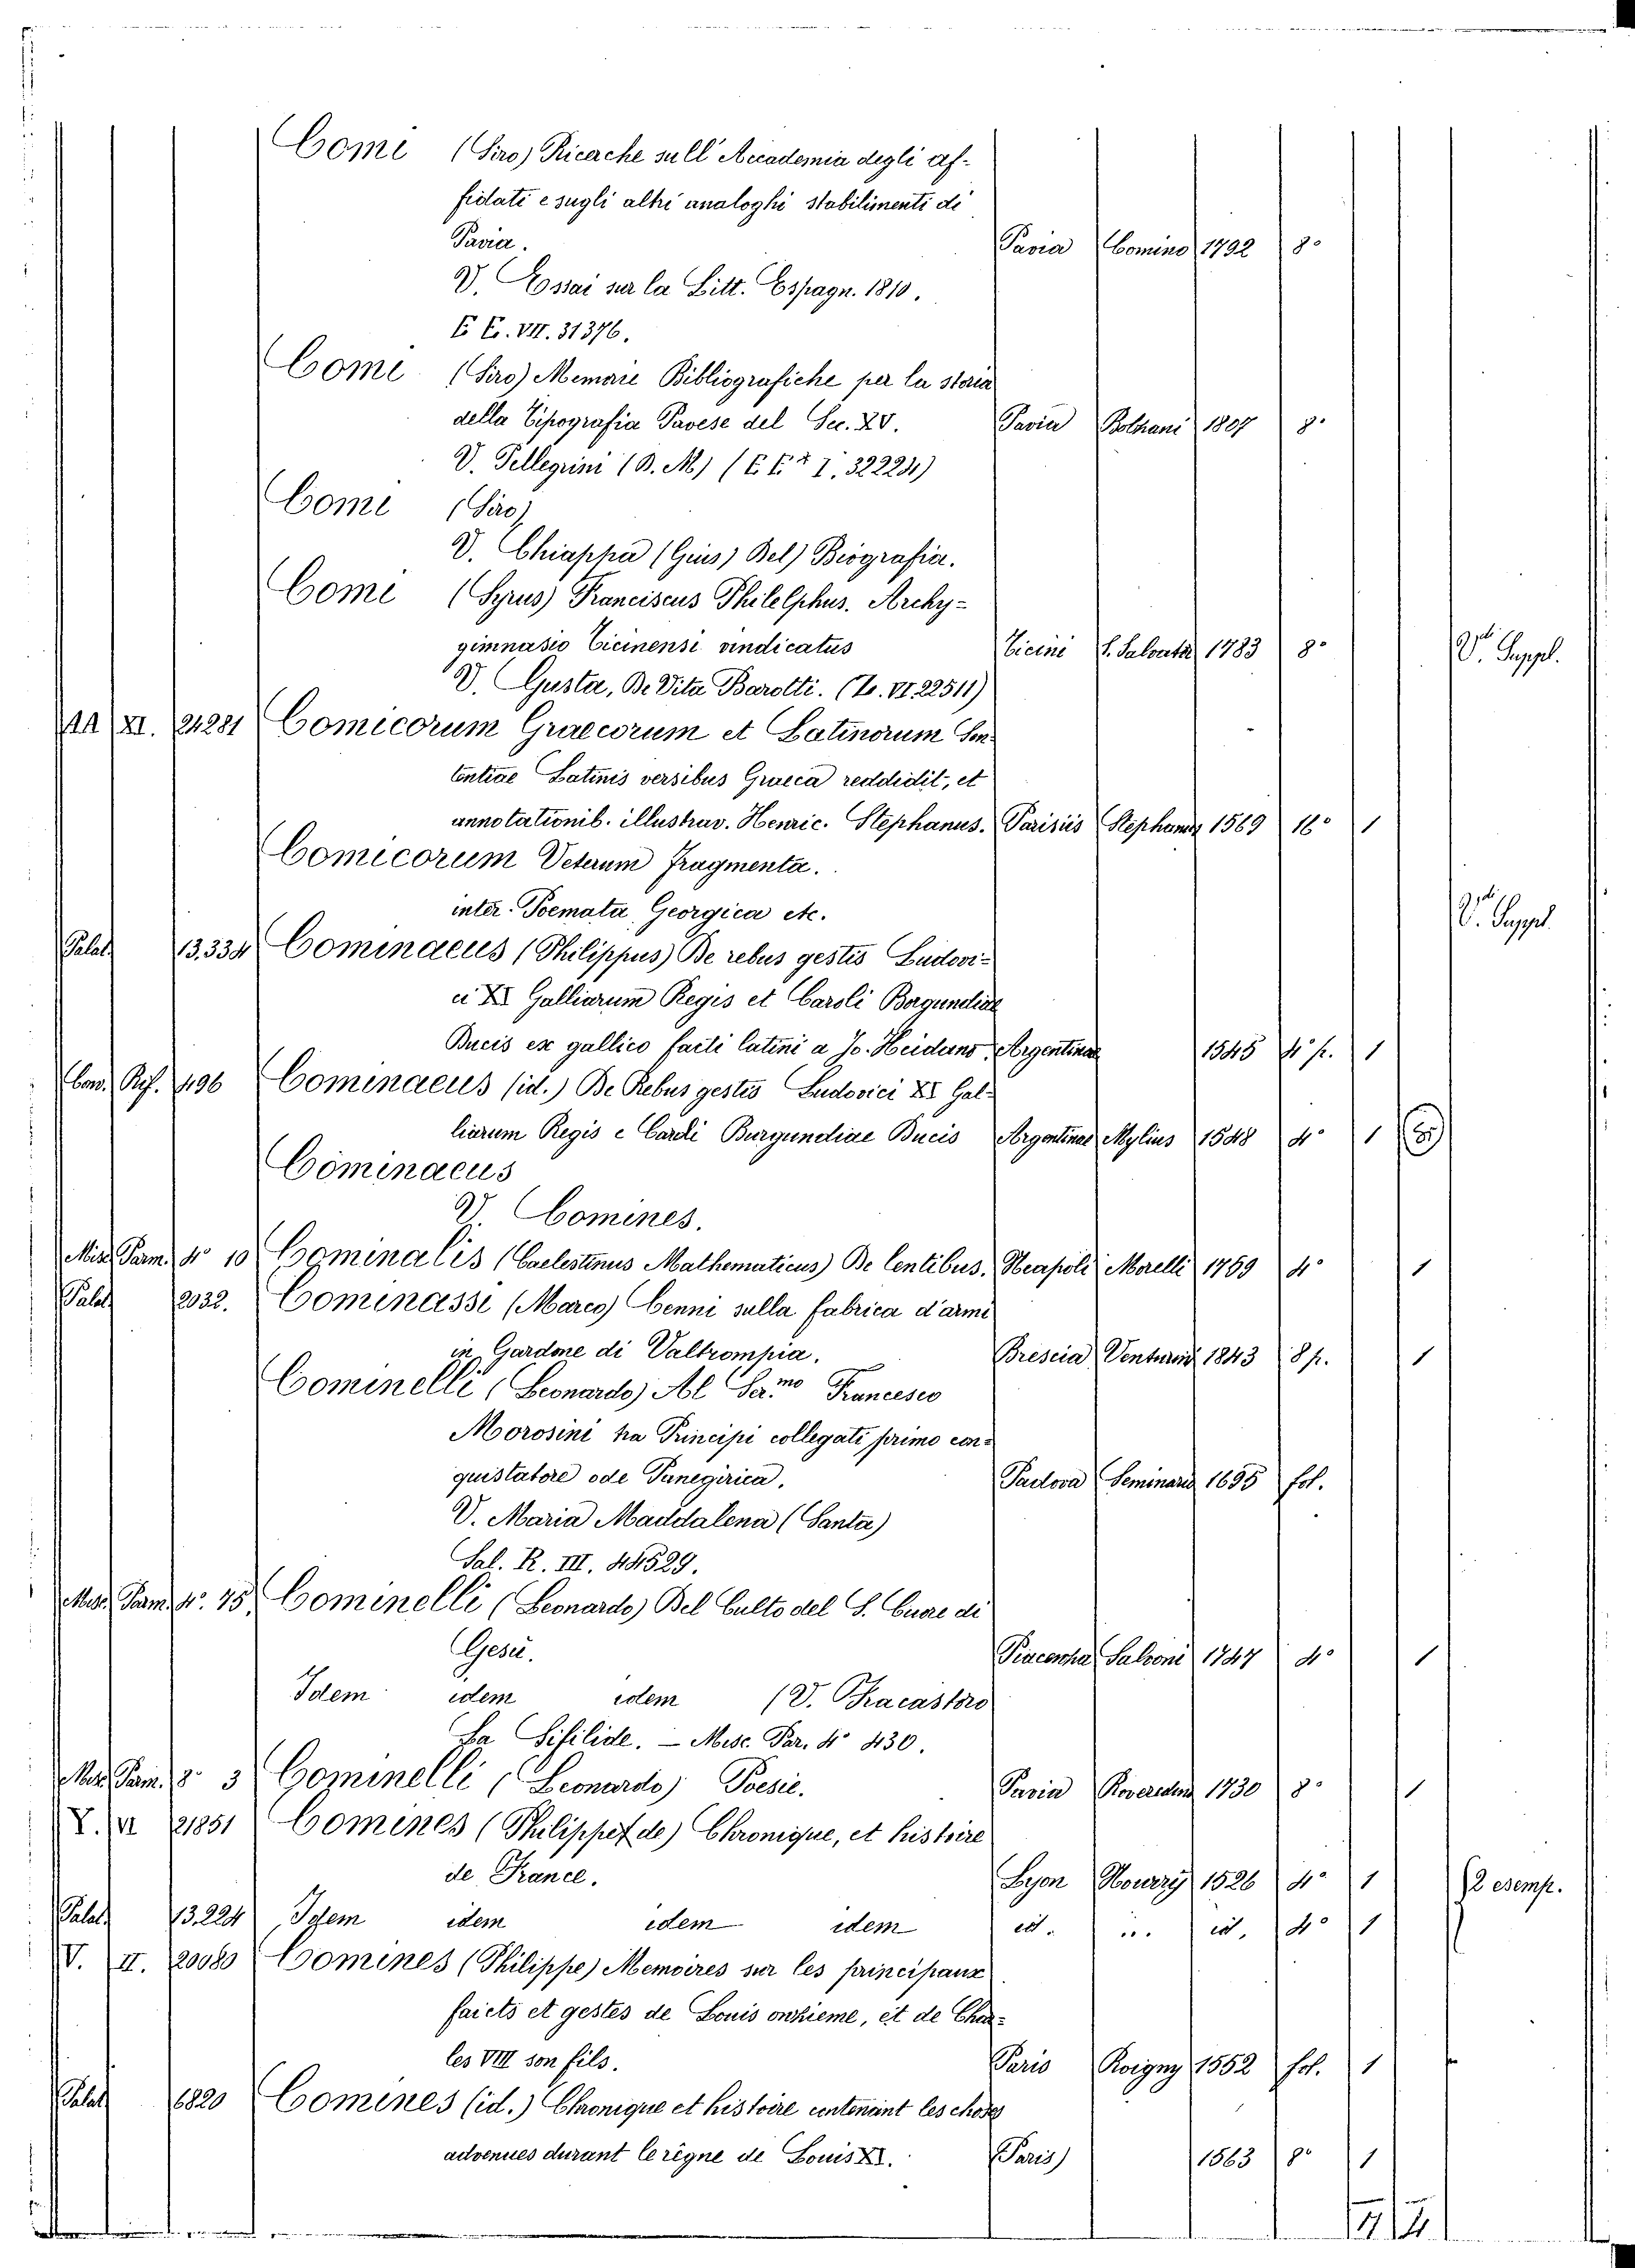 Comi (Siro) Ricerche sull' Accademia degli Af-
fidati e sugli altri analoghi stabilimenti di
Pavia. Pavia Comino 1792 8°
V. Essai sur la Litt. Espagn. 1810.
E E. VII. 31376.
Comi (Siro) Memorie Bibliografiche per la storia
della Tipografia Pavese del Sec. XV. Pavia Bolzani 1807 8°
V. Pellegrini (D. M.) (E E I. 32224)
Comi (Siro)
V. Chiappa (Gius) Del) Biografia.
Comi (Syrus) Franciscus Philelphus. Archy-
gimnasio Ticinensi vindicatus Ticini S. Salvator 1783 8° V. Suppl.
V. Gusta, De Vita Barotti. (Z. VI. 22511)
AA XI. 24281 Comicorum Graecorum et Latinorum Sen-
tentiae Latinis versibus Graeca reddidit, et
annotationib. illustrav. Henric. Stephanus. Parisiis Stephanus 1569 16° 1
Comicorum Veterum Fragmenta.
inter Poemata Georgica etc. V. Suppl.
Palat. 13.334 Cominaeus (Philippus) De rebus gestis Ludovi-
ci XI Galliarum Regis et Caroli Burgundiae
Ducis ex gallico facti latini a Jo. Sleidano. Argentinae 1545 4° p. 1
Conv. Rif. 496 Cominaeus (id.) De Rebus gestis Ludovici XI Gal-
liarum Regis e Caroli Burgundiae Ducis Argentinae Mylius 1548 4° 1
Cominaeus
V. Comines.
Misc. Parm. 4° 10 Cominalis (Caelestinus Mathematicus) De lentibus. Neapoli Morelli 1769 4° 1
Palat. 2032. Cominassi (Marco) Cenni sulla fabrica d'armi
in Gardone di Valtrompia. Brescia Venturini 1843 8 p. 1
Cominelli (Leonardo) Al Ser.mo Francesco
Morosini tra Principi collegati primo con-
quistatore ode Panegirica. Padova Seminario 1695 fol.
V. Maria Maddalena (Santa)
Sal. R. III. 44529.
Misc. Parm. 4°. 75 Cominelli (Leonardo) Del Culto del S. Cuore di
Gesù. Piacenza Salvoni 1747 4° 1
Idem idem idem (V. Fracastoro
La Sifilide. - Misc. Par. 4° 430.
Misc. Parm. 8° 3 Cominelli (Leonardo) Poesie. Pavia Rovereden 1730 8° 1
Y. VI 21851 Comines (Philippe de) Chronique, et histoire
de France. Lyon Nourry 1526 4° 1 2 esemp.
Palat. 13.224 Idem idem idem idem id. .. id. 4° 1
V. II. 20080 Comines (Philippe) Memoires sur les principaux
faicts et gestes de Louis onzieme, et de Char-
les VIII son fils. Paris Roigny 1552 fol. 1
Palat. 6820 Comines (id.) Chronique et histoire contenant les choses
advenues durant le règne de Louis XI. (Paris) 1563 8° 1